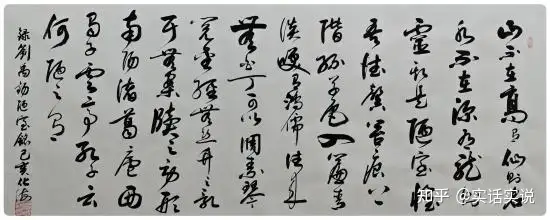 山不在高有仙则名
水不在深有龍则
靈斯是陋室惟
吾德馨苔痕上
階绿草色入簾青
谈笑有鸿儒往来
無白丁可以调素琴
阅金經無丝竹之乱
耳無案牍之劳形
南阳诸葛廬西
蜀子雲亭孔子云
何陋之有
録劉禹锡陋室銘己亥
知乎 @实话实说